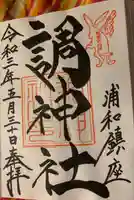 浦和鎮座
調神社
令和三年五月三十日奉拝